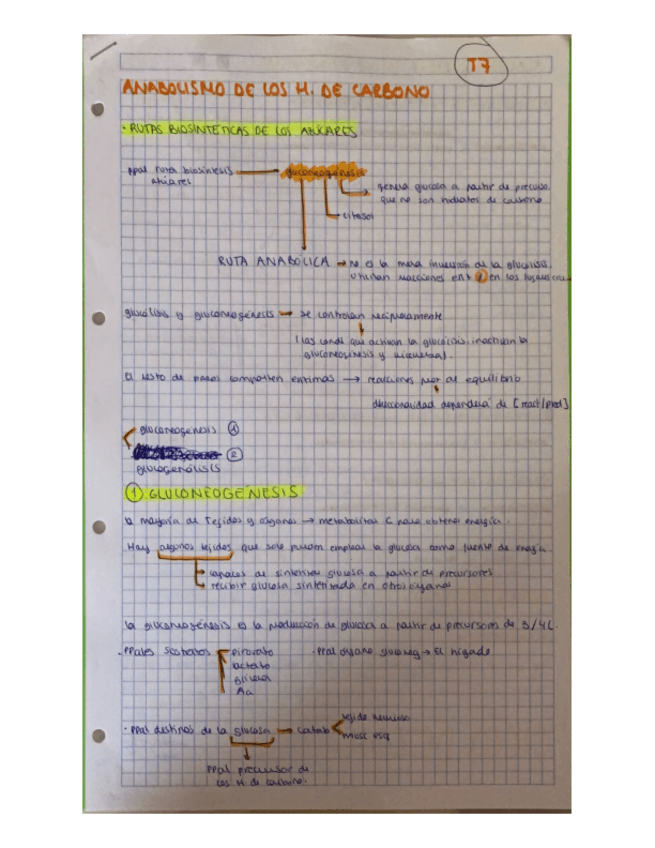 T7
ANABOLISMO DE LOS H. DE CARBONO
· RUTAS BIOSINTÉTICAS DE LOS AZÚCARES
ppal ruta biosíntesis → gluconeogénesis
azúcares
genera glucosa a partir de precurso.
que no son hidratos de carbono
citosol
RUTA ANABÓLICA → no es la mera inversión de la glucólisis.
utilizan reacciones en
glucólisis y gluconeogénesis → se controlan recíprocamente
(las cond. que activan la glucólisis inactivan la
gluconeogénesis y viceversa).
El resto de pasos comparten enzimas → reacciones al equilibrio
direccionalidad dependerá de [react/prod]
gluconeogénesis ①
②
glucogenólisis
① GLUCONEOGÉNESIS
la mayoría de Tejidos y órganos → metabolitos C para obtener energía.
Hay algunos tejidos que solo pueden emplear la glucosa como fuente de energía.
capaces de sintetizar glucosa a partir de precursores
recibir glucosa sintetizada en otros órganos
la gluconeogénesis es la producción de glucosa a partir de precursores de 3/4C.
· ppales sustratos
piruvato
lactato
glicerol
Aa
· ppal órgano gluconeg → El hígado
· ppal destinos de la glucosa → catab
tejido nervioso
musc esq
ppal precursor de
los H. de carbono.